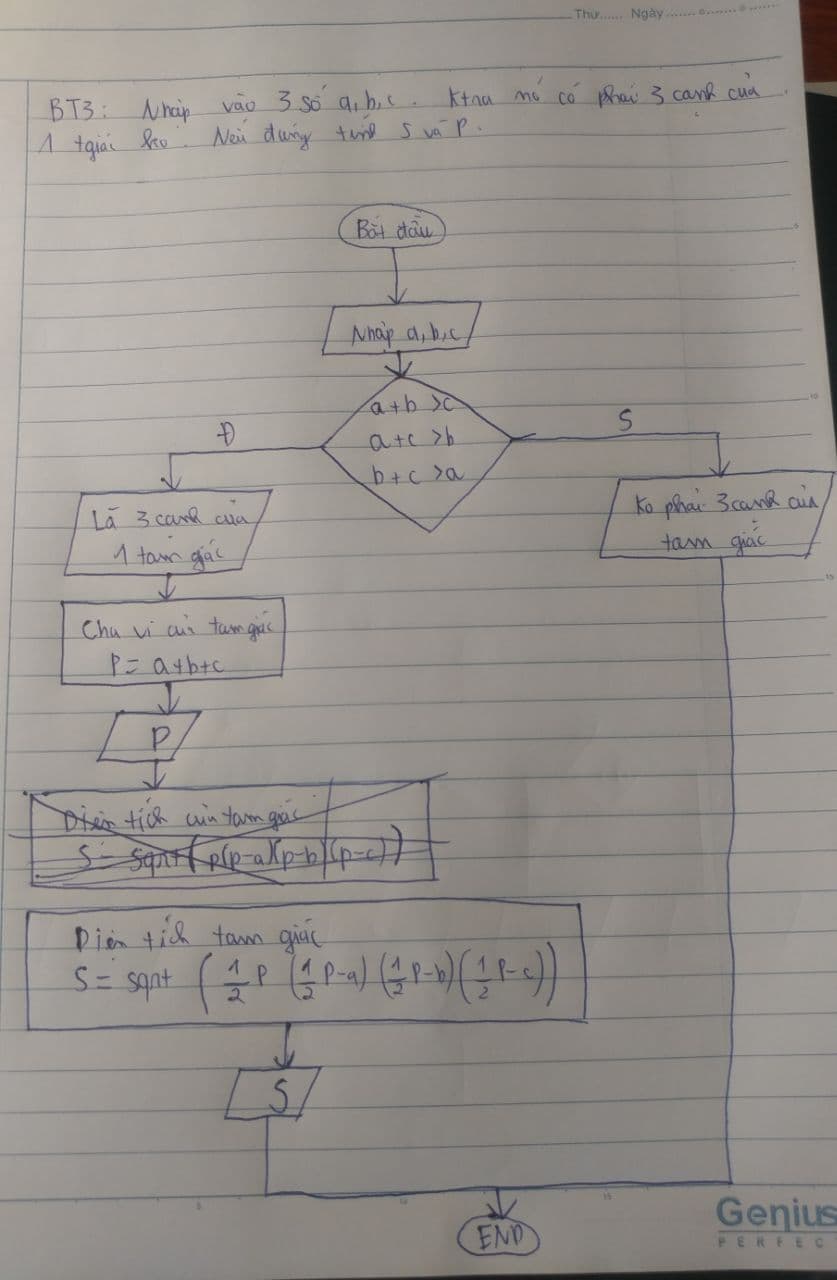 Thứ...... Ngày.............
BT3: Nhập vào 3 số a,b,c. Ktra nó có phải 3 cạnh của
1 tgiác ko. Nếu đúng tính S và P.
Bắt đầu
Nhập a,b,c
a+b >c
a+c >b
b+c >a
Đ
S
Là 3 cạnh của
1 tam giác
Ko phải 3 cạnh của
tam giác
Chu vi của tam giác
P= a+b+c
P
Diện tích của tam giác
S= sqrt( p(p-a)(p-b)(p-c))
Diện tích tam giác
S= sqrt (1/2 P (1/2 P-a) (1/2 P-b) (1/2 P-c))
S
END
Genius
PERFEC